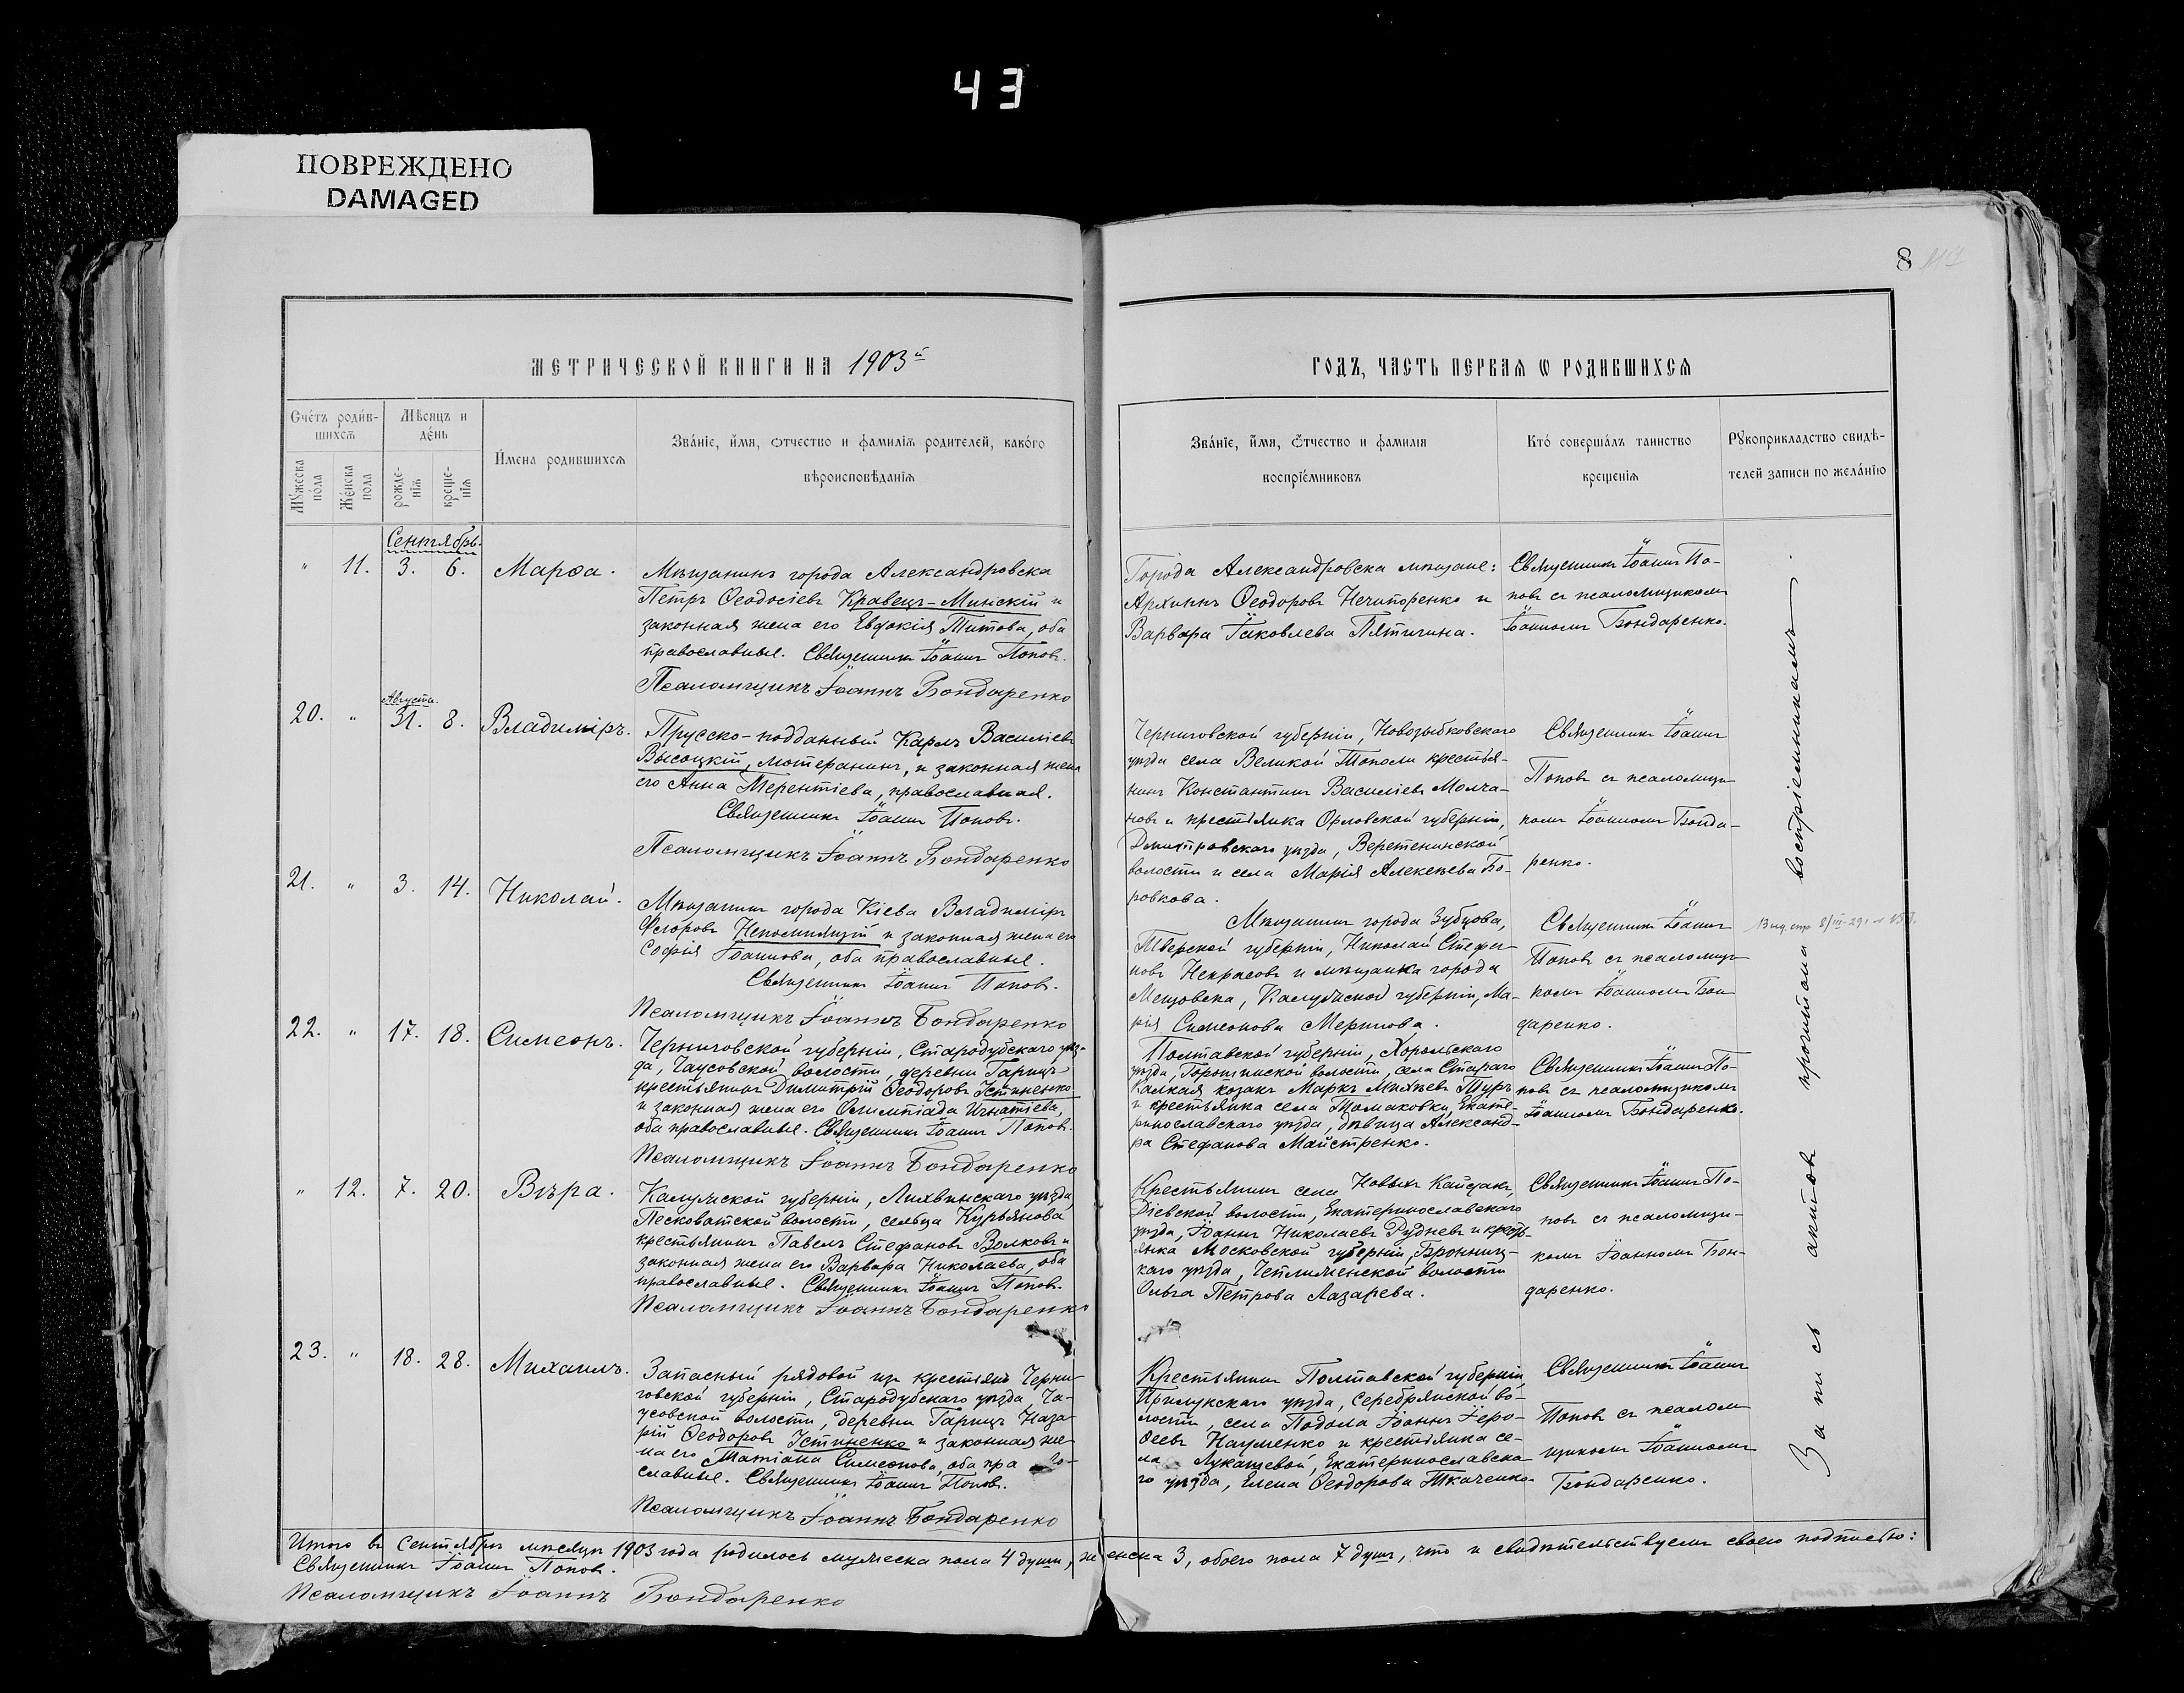 43
ПОВРЕЖДЕНО
DAMAGED
8
МЕТРИЧЕСКОЙ КНИГИ НА 1903й
ГОДЪ, ЧАСТЬ ПЕРВАЯ Ѡ РОДИВШИХСЯ
Счетъ родив-
шихся
Мѣсяцъ и
день
Мужеска
пола
Женска
пола
рожде-
нія
креще-
нія
Имена родившихся
Званіе, имя, отчество и фамилія родителей, какого
вѣроисповѣданія
Званіе, имя, отчество и фамилія
воспріемниковъ
Кто совершалъ таинство
крещенія
Рукоприкладство свидѣ-
телей записи по желанію
Сентябрь.
" 11. 3. 6. Марѳа.
Мѣщанинъ города Александровска
Петръ Ѳеодосіевъ Кравецъ-Минскій и
законная жена его Евдокія Титова, оба
православные. Священникъ Іоаннъ Поповъ.
Псаломщикъ Іоаннъ Бондаренко
Города Александровска мѣщане:
Архиппъ Ѳеодоровъ Нечипоренко и
Варвара Іаковлева Пятигина.
Священникъ Іоаннъ По-
повъ съ псаломщикомъ
Іоанномъ Бондаренко.
Августа.
20. " 31. 8. Владиміръ.
Прусско-подданный Карлъ Василіевъ
Высоцкій, лютеранинъ, и законная жена
его Анна Терентіева, православная.
Священникъ Іоаннъ Поповъ.
Псаломщикъ Іоаннъ Бондаренко
Черниговской губерніи, Новозыбковскаго
уѣзда села Великой Тополи крестья-
нинъ Константинъ Василіевъ Молча-
новъ и крестьянка Орловской губерніи,
Дмитровскаго уѣзда, Веретенинской
волости и села Марія Алексѣева Бо-
ровкова.
Священникъ Іоаннъ
Поповъ съ псаломщи-
комъ Іоанномъ Бонда-
ренко.
21. " 3. 14. Николай.
Мѣщанинъ города Кіева Владиміръ
Ѳеоровъ Непомнящій и законная жена его
Софія Іоаннова, оба православные.
Священникъ Іоаннъ Поповъ.
Псаломщикъ Іоаннъ Бондаренко
Мѣщанинъ города Зубцова,
Тверской губерніи, Николай Стефа-
новъ Некрасовъ и мѣщанка города
Мещовска, Калужской губерніи, Ма-
рія Симеонова Меринова.
Священникъ Іоаннъ
Поповъ съ псаломщи-
комъ Іоанномъ Бон-
даренко.
22. " 17. 18. Симеонъ.
Черниговской губерніи, Стародубскаго уѣз-
да, Чаусовской волости, деревни Гарицъ
крестьянинъ Димитрій Ѳеодоровъ Устиненко
и законная жена его Олимпіада Игнатіева,
оба православные. Священникъ Іоаннъ Поповъ.
Псаломщикъ Іоаннъ Бондаренко
Полтавской губерніи, Хорольскаго
уѣзда, волости, села Стараго
козакъ Маркъ Михѣевъ Туръ
и крестьянка села Томаковки, Екате-
ринославскаго уѣзда, дѣвица Александ-
ра Стефанова Майстренко.
Священникъ Іоаннъ По-
повъ съ псаломщикомъ
Іоанномъ Бондаренко.
" 12. 7. 20. Вѣра.
Калужской губерніи, Лихвинскаго уѣзда,
Песковатской волости, сельца Курьянова
крестьянинъ Павелъ Стефановъ Волковъ и
законная жена его Варвара Николаева, оба
православные. Священникъ Іоаннъ Поповъ.
Псаломщикъ Іоаннъ Бондаренко
Крестьянинъ села Новыхъ Кайдакъ,
Діевской волости, Екатеринославскаго
уѣзда, Іоаннъ Николаевъ Рудневъ и кресть-
янка Московской губерніи, Бронниц-
каго уѣзда, волости
Ольга Петрова Лазарева.
Священникъ Іоаннъ По-
повъ съ псаломщи-
комъ Іоанномъ Бон-
даренко.
23. " 18. 28. Михаилъ.
Запасный рядовой изъ крестьянъ Черни-
говской губерніи, Стародубскаго уѣзда, Ча-
усовской волости, деревни Гарицъ Наза-
рій Ѳеодоровъ Устиненко и законная же-
на его Татіана Симеонова, оба пра во-
славные. Священникъ Іоаннъ Поповъ.
Псаломщикъ Іоаннъ Бондаренко
Крестьянинъ Полтавской губерніи
Прилукскаго уѣзда, Серебрянской во-
лости, села Подола Іоаннъ Іеро-
ѳеевъ Науменко и крестьянка се-
ла Лукашевой, Екатеринославска-
го уѣзда, Елена Ѳеодорова Ткаченко.
Священникъ Іоаннъ
Поповъ съ псалом-
щикомъ Іоанномъ
Бондаренко.
Запись актовъ прочитана воспріемникамъ.
Итого въ Сентябрѣ мѣсяцѣ 1903 года родилось мужеска пола 4 души, женска 3, обоего пола 7 душъ, что и свидѣтельствуемъ своею подписью:
Священникъ Іоаннъ Поповъ.
Псаломщикъ Іоаннъ Бондаренко